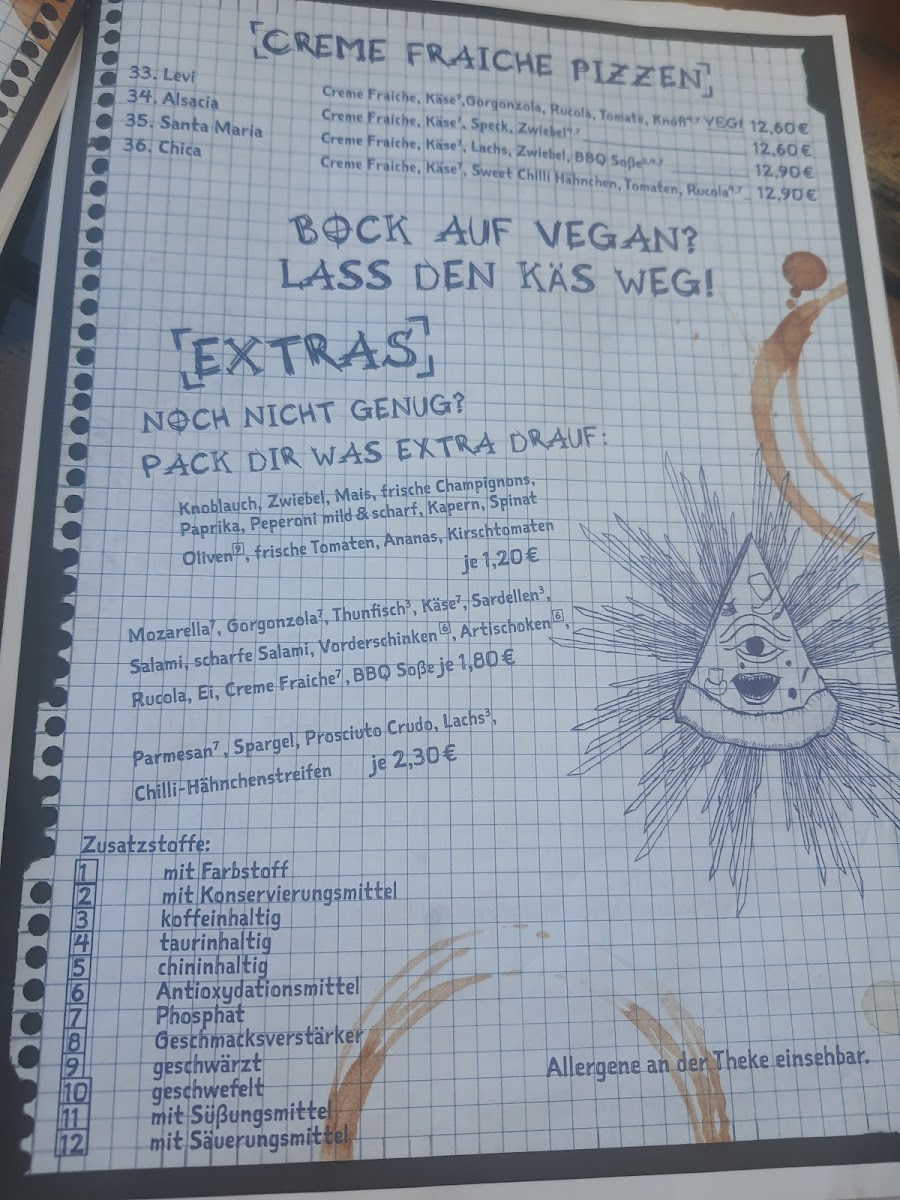 CREME FRAICHE PIZZEN
33. Levi Creme Fraiche, Käse⁷, Gorgonzola, Rucola, Tomate, Knofi VEG! 12,60€
34. Alsacia Creme Fraiche, Käse⁷, Speck, Zwiebel 12,60€
35. Santa Maria Creme Fraiche, Käse⁷, Lachs, Zwiebel, BBQ Soße 12,90€
36. Chica Creme Fraiche, Käse⁷, Sweet Chilli Hähnchen, Tomaten, Rucola 12,90€
BOCK AUF VEGAN?
LASS DEN KÄS WEG!
EXTRAS
NOCH NICHT GENUG?
PACK DIR WAS EXTRA DRAUF:
Knoblauch, Zwiebel, Mais, frische Champignons,
Paprika, Peperoni mild & scharf, Kapern, Spinat
Oliven 9, frische Tomaten, Ananas, Kirschtomaten
je 1,20€
Mozarella⁷, Gorgonzola⁷, Thunfisch³, Käse⁷, Sardellen³,
Salami, scharfe Salami, Vorderschinken 6, Artischoken 6,
Rucola, Ei, Creme Fraiche⁷, BBQ Soße je 1,80€
Parmesan⁷, Spargel, Prosciuto Crudo, Lachs³,
Chilli-Hähnchenstreifen je 2,30€
Zusatzstoffe:
1 mit Farbstoff
2 mit Konservierungsmittel
3 koffeinhaltig
4 taurinhaltig
5 chininhaltig
6 Antioxydationsmittel
7 Phosphat
8 Geschmacksverstärker
9 geschwärzt
10 geschwefelt
11 mit Süßungsmittel
12 mit Säuerungsmittel
Allergene an der Theke einsehbar.